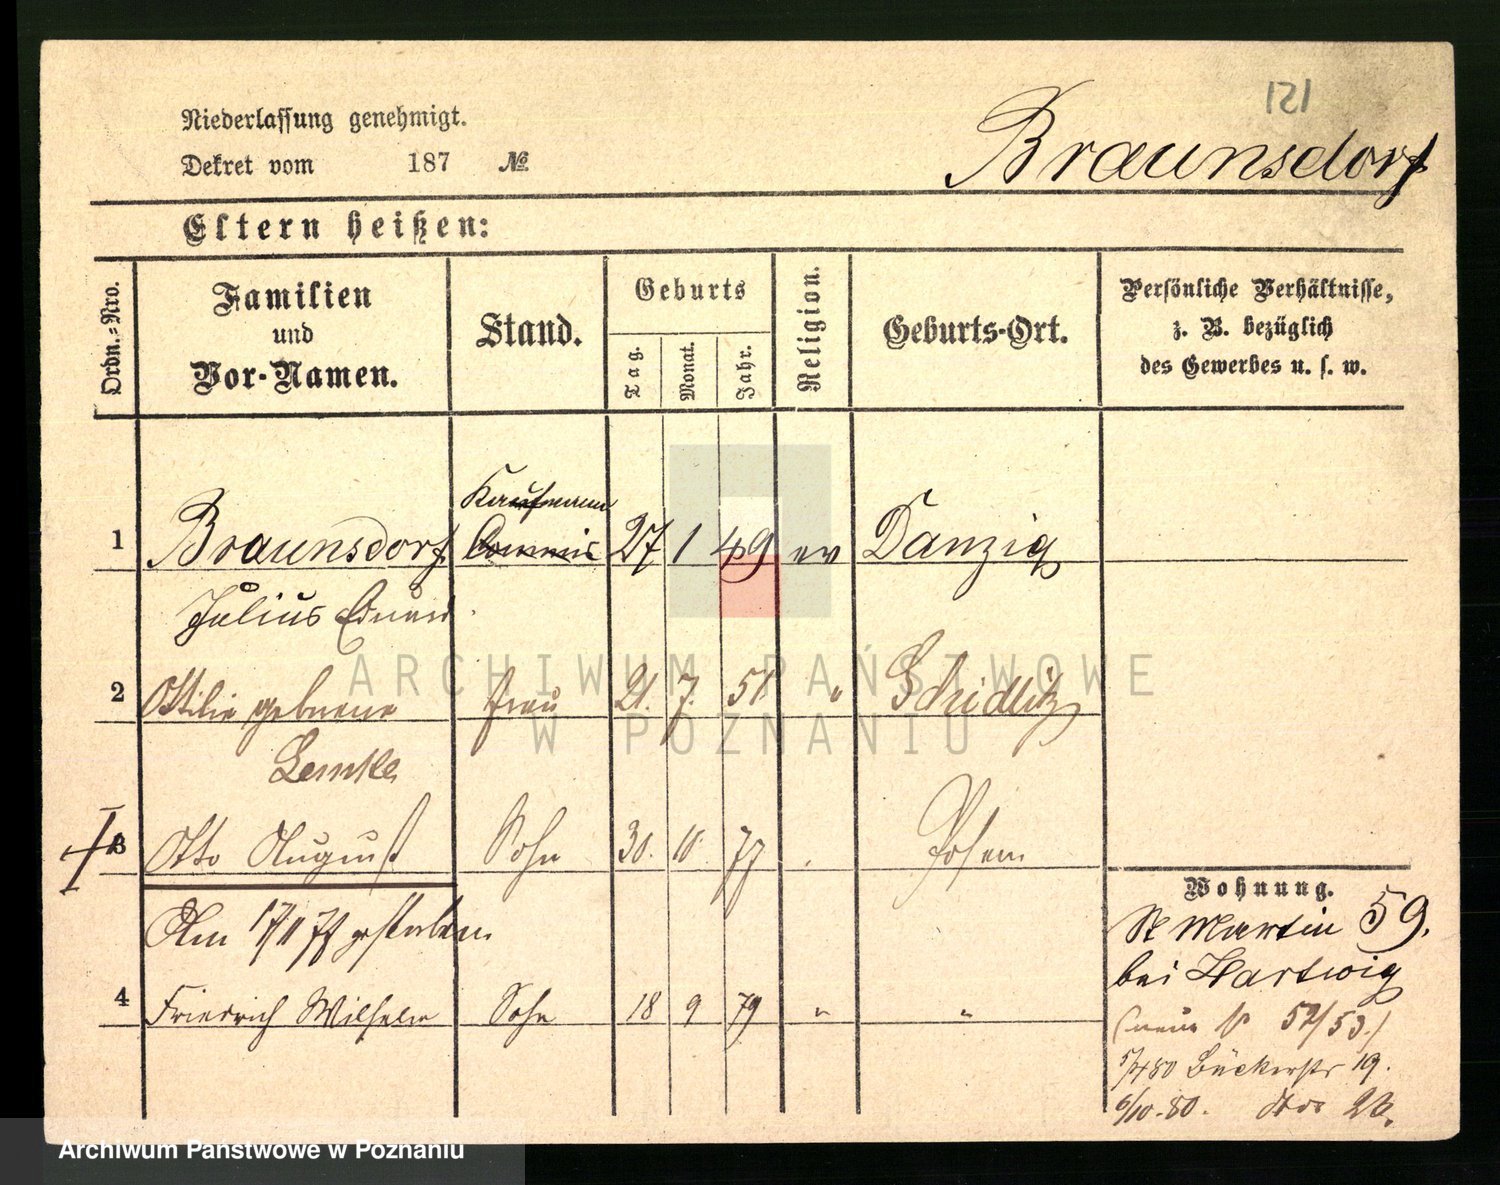 121
Niederlassung genehmigt.
Dekret vom 187 №
Braunsdorf
Eltern heißen:
Ordn.=Nro.
Familien
und
Vor-Namen.
Stand.
Geburts
Tag.
Monat.
Jahr.
Religion.
Geburts-Ort.
Persönliche Verhältnisse,
z. B. bezüglich
des Gewerbes u. s. w.
Kaufmann
1 Braunsdorf Commis 27 1 49 ev Danzig
Julius Eduard
2 Ottilie geborene Frau 21. 7. 51 " Schidlitz
Lemke
3 Otto August Sohn 30. 10. 77 Posen
Am 17/11 77 gestorben
4 Friedrich Wilhelm Sohn 18 9 79 " "
Wohnung.
St Martin 59.
bei Hartwig
(neue 52/53.)
5/4 80 Bäckerstr 19.
6/10. 80. 23.
ARCHIWUM PAŃSTWOWE
W POZNANIU
Archiwum Państwowe w Poznaniu